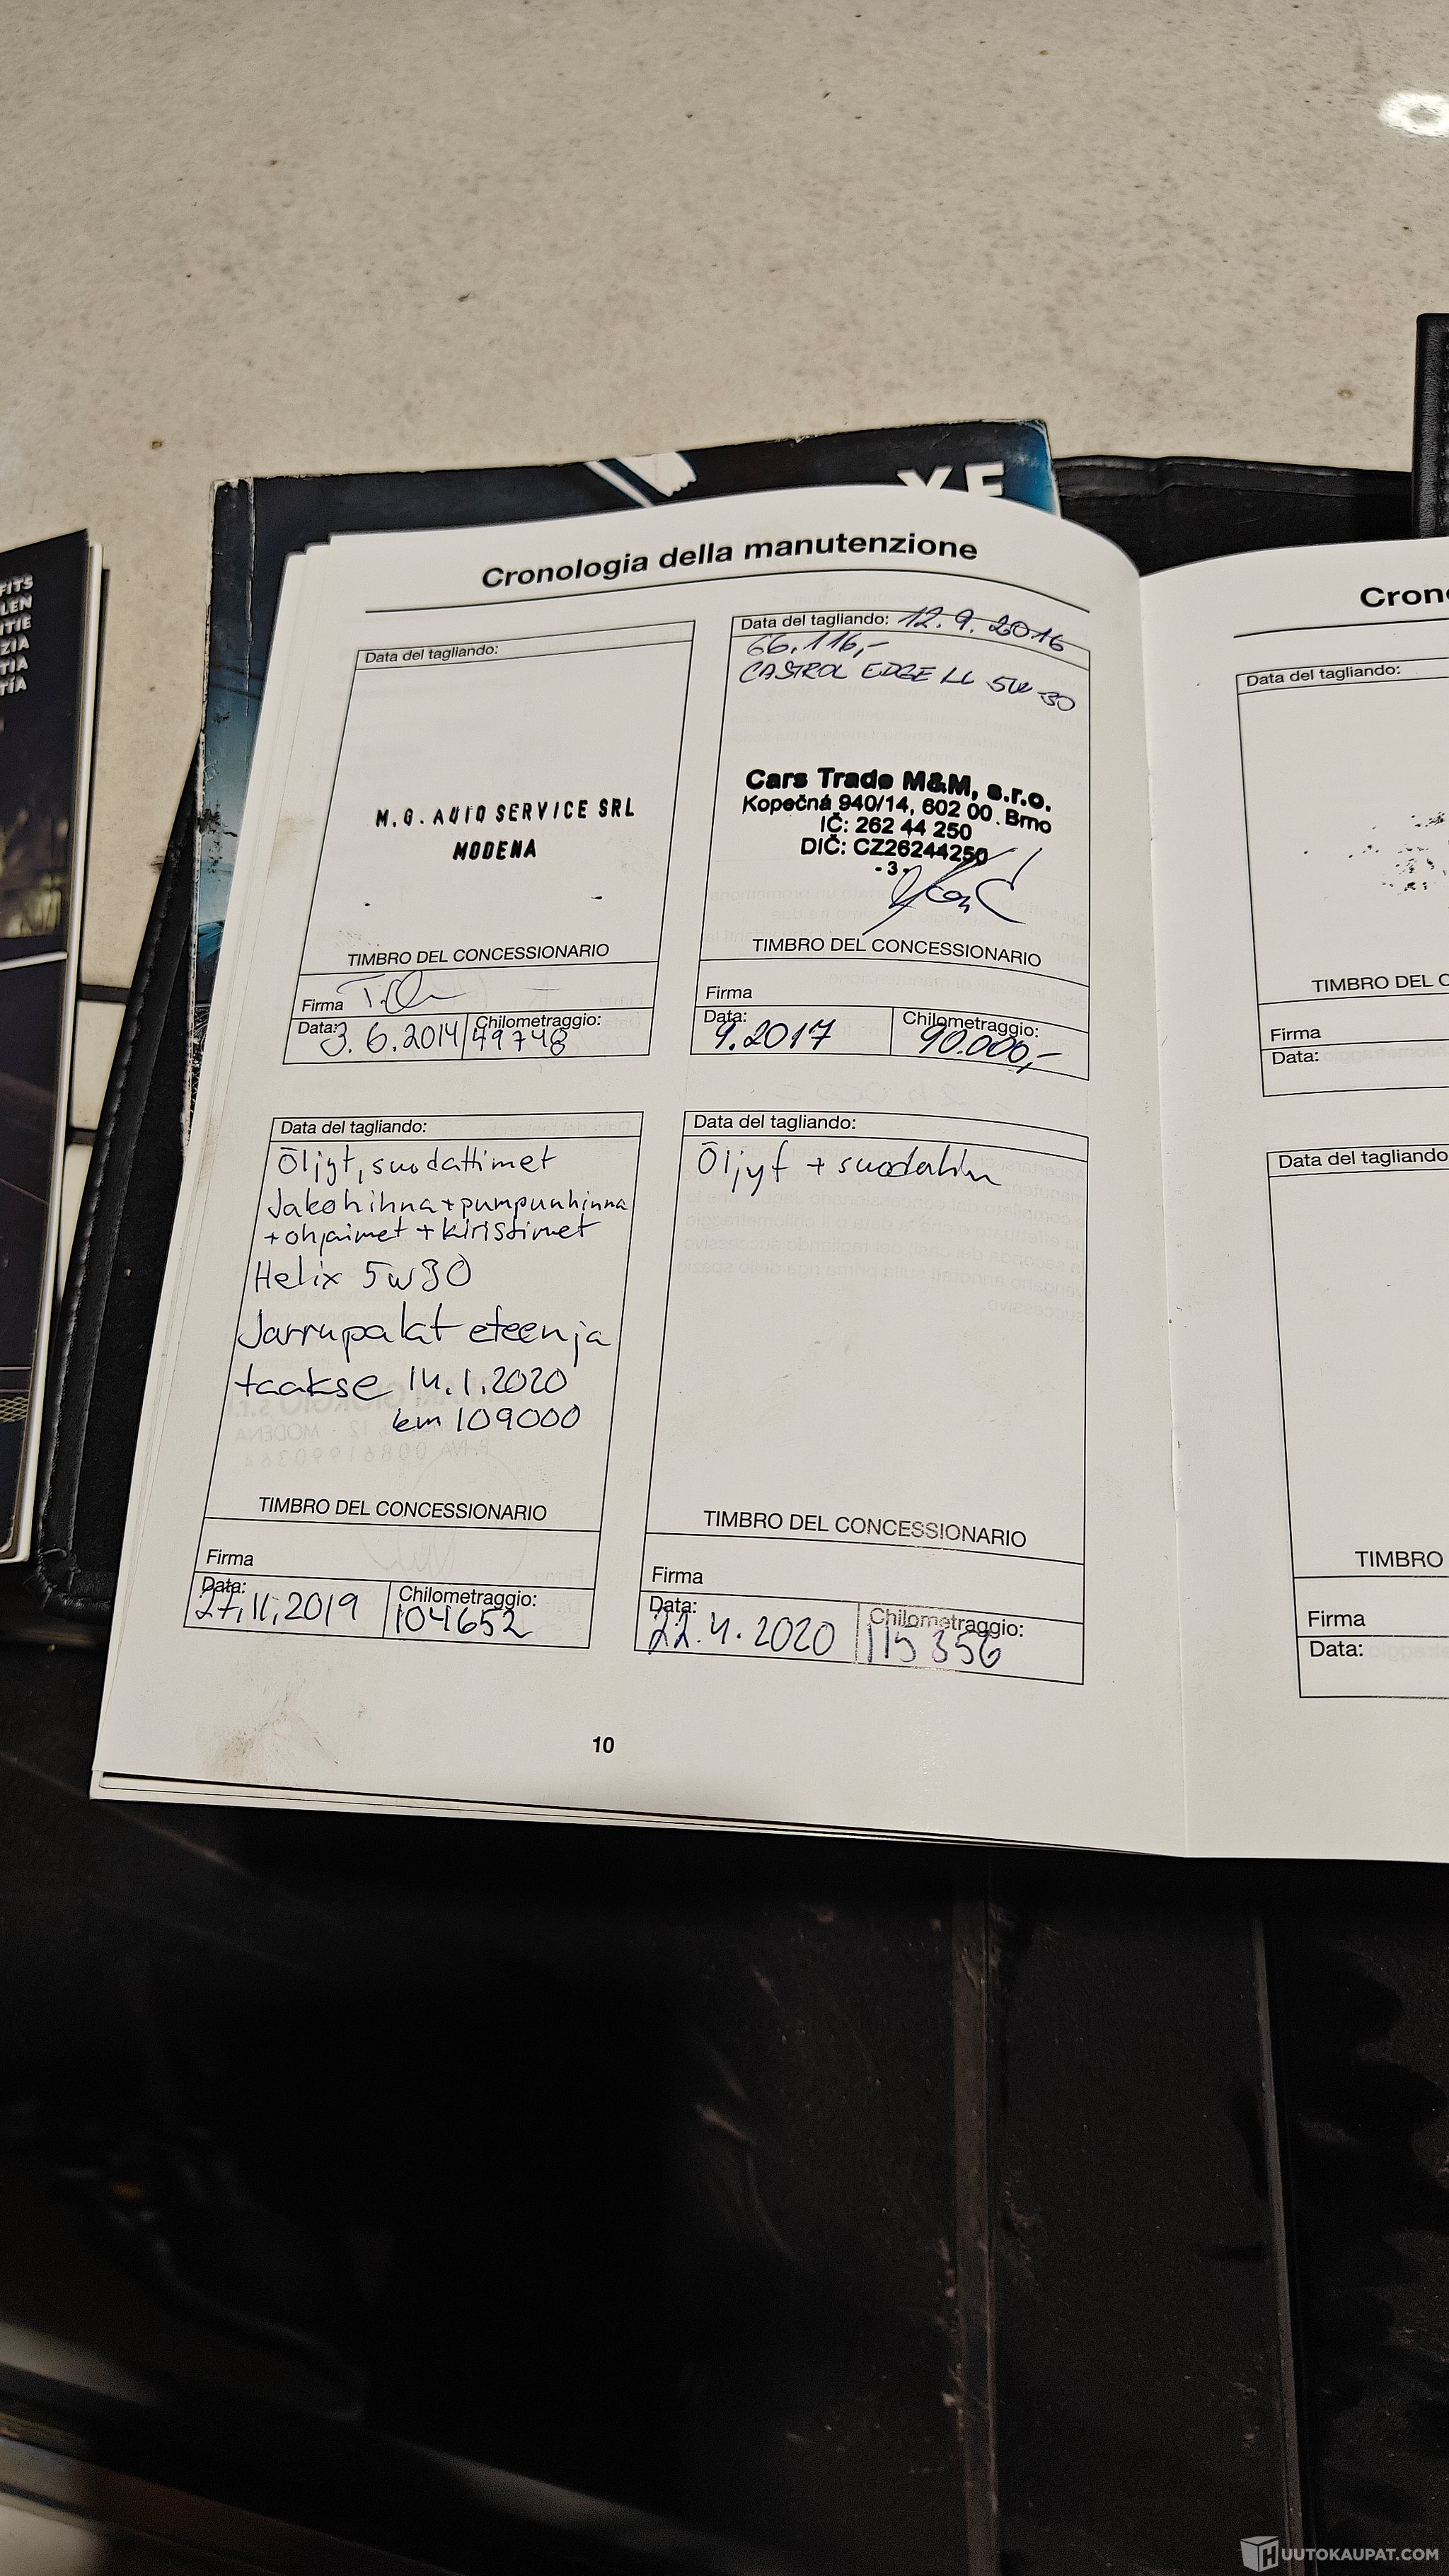 FITS
LEN
TIE
ZIA
TIA
TÍA
Cronologia della manutenzione
Data del tagliando:
M.G. AUTO SERVICE SRL
MODENA
TIMBRO DEL CONCESSIONARIO
Firma
Data: 3.6.2014 Chilometraggio: 49748
Data del tagliando: 12.9.2016
66.116,-
CASTROL EDGE LL 5W-30
Cars Trade M&M, s.r.o.
Kopečná 940/14, 602 00 Brno
IČ: 262 44 250
DIČ: CZ26244250
- 3 -
TIMBRO DEL CONCESSIONARIO
Firma
Data: 9.2017 Chilometraggio: 90.000,-
Data del tagliando:
Öljyt, suodattimet
Jakohihna + pumpunhinna
+ ohjaimet + kiristimet
Helix 5w30
Jarrupalat eteen ja
taakse 14.1.2020
km 109000
TIMBRO DEL CONCESSIONARIO
Firma
Data: 27.11.2019 Chilometraggio: 104652
Data del tagliando:
Öljyt + suodatin
TIMBRO DEL CONCESSIONARIO
Firma
Data: 22.4.2020 Chilometraggio: 115356
10
Cron
Data del tagliando:
TIMBRO DEL C
Firma
Data:
Data del tagliando
TIMBRO
Firma
Data:
HUUTOKAUPAT.COM